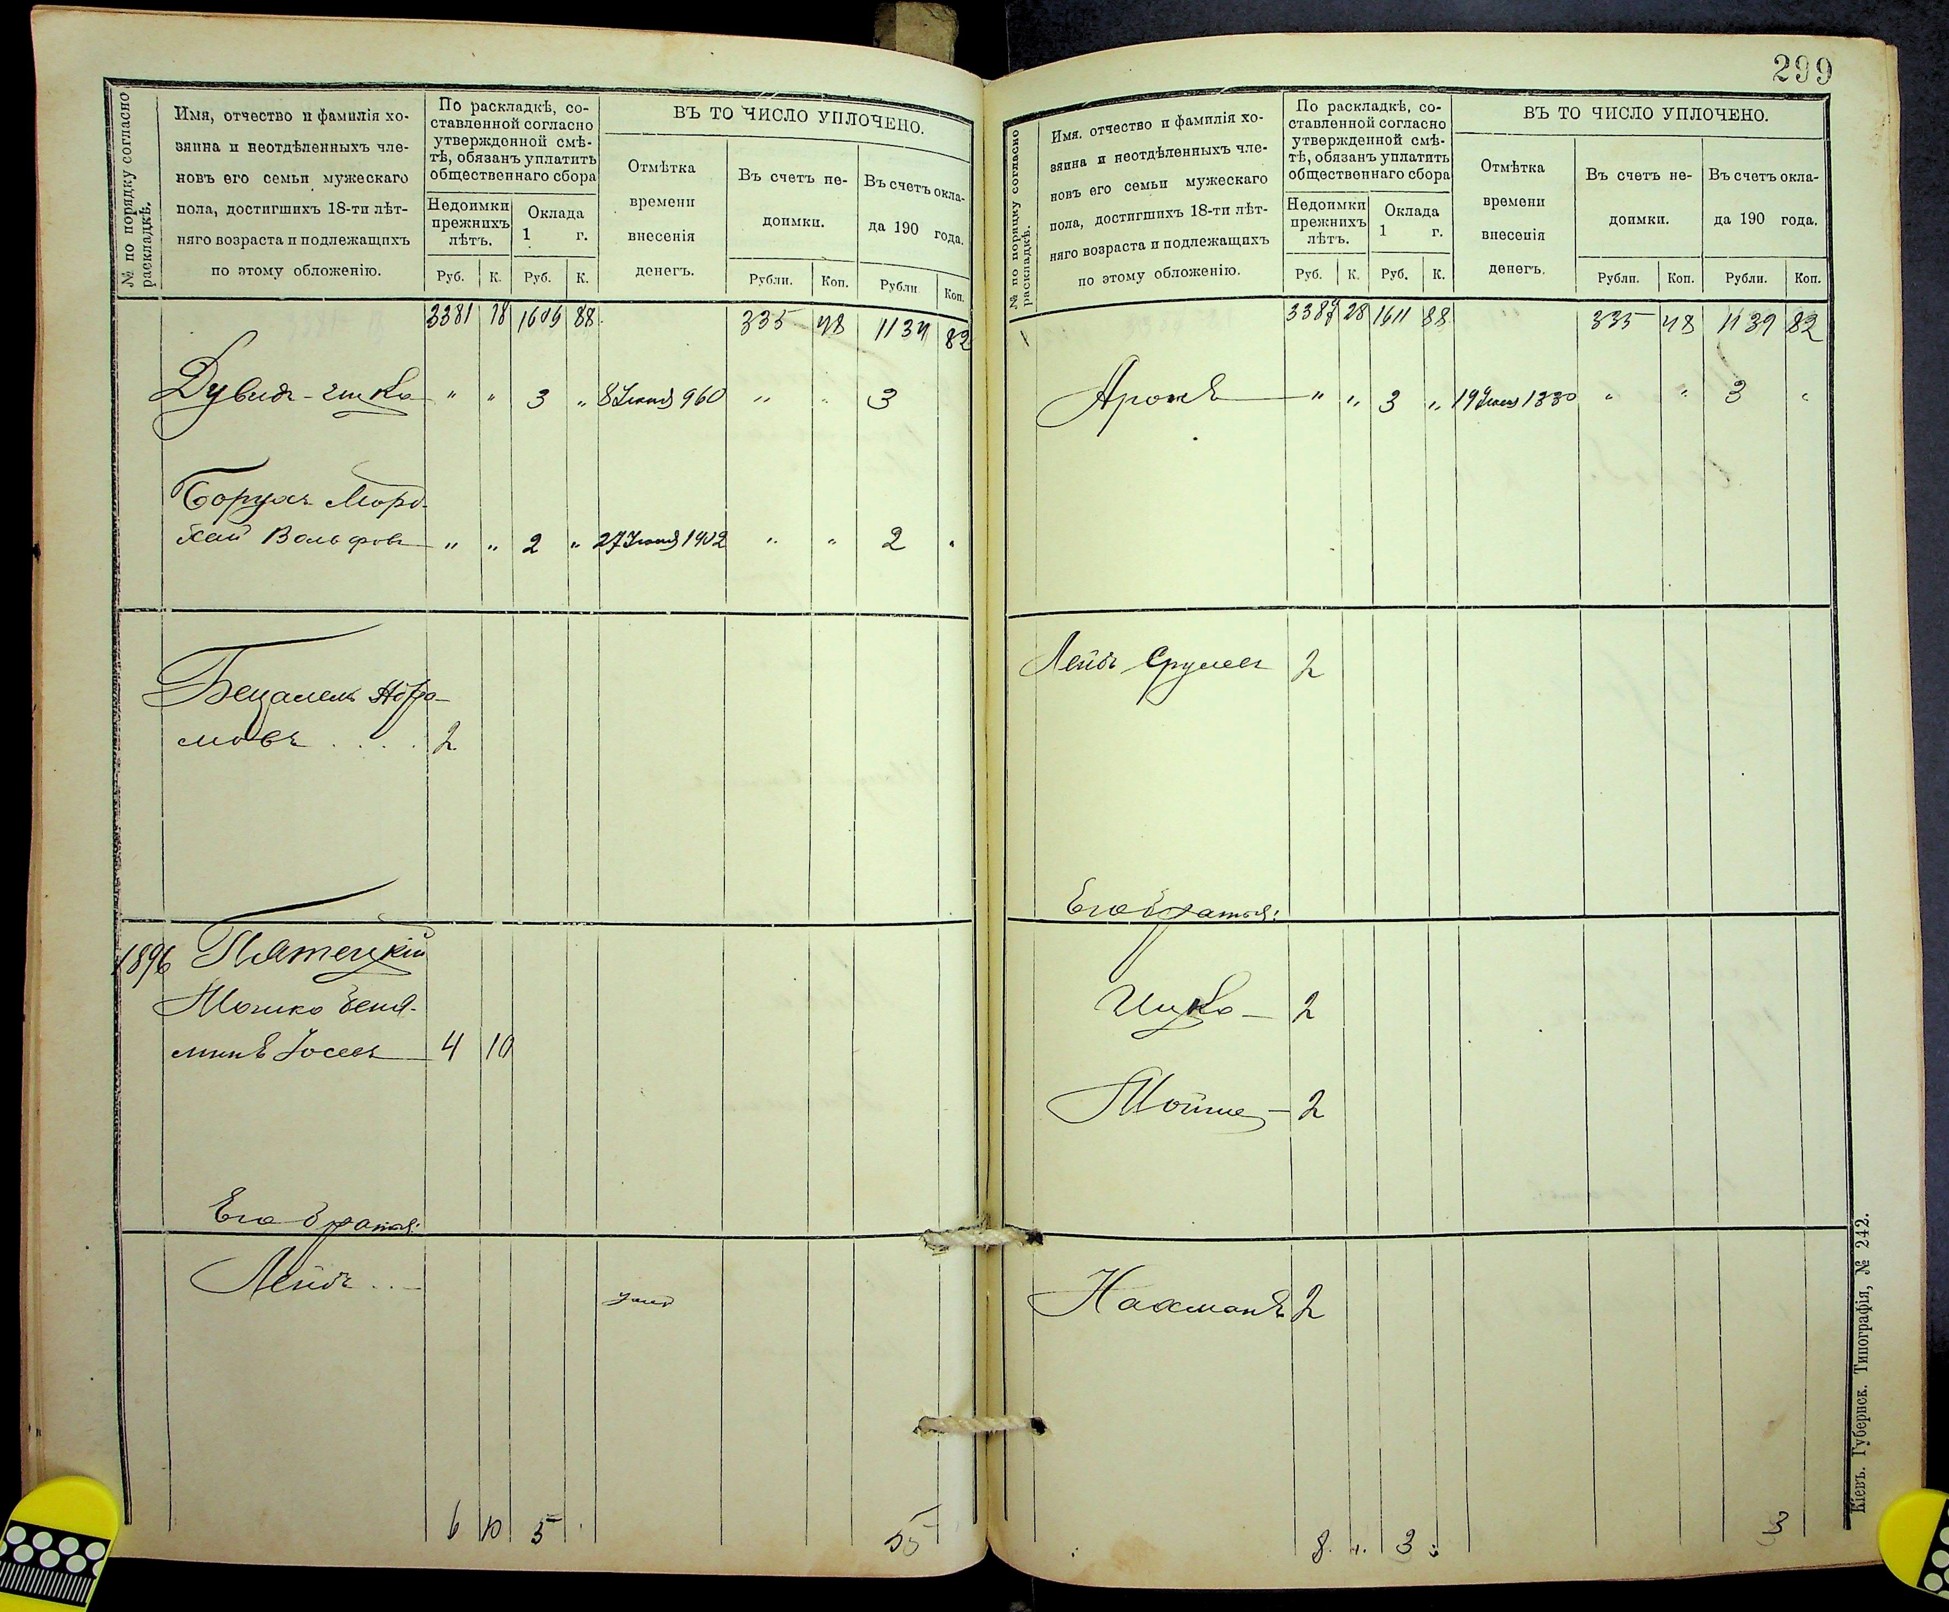 299
№ по порядку согласно раскладкѣ.
Имя, отчество и фамилія хо-
зяина и неотдѣленныхъ чле-
новъ его семьи мужескаго
пола, достигшихъ 18-ти лѣт-
няго возраста и подлежащихъ
по этому обложенію.
По раскладкѣ, со-
ставленной согласно
утвержденной смѣ-
тѣ, обязанъ уплатить
общественнаго сбора
Недоимки
прежнихъ
лѣтъ.
Оклада
1 г.
Руб. К. Руб. К.
ВЪ ТО ЧИСЛО УПЛОЧЕНО.
Отмѣтка
времени
внесенія
денегъ.
Въ счетъ не-
доимки.
Въ счетъ окла-
да 190 года.
Рубли. Коп. Рубли Коп.
3381 18 1609 88 335 48 1134 82
Дувидъ-Ицко " " 3 " 8 Іюня 960 " " 3
Борухъ Морд-
хай Вольфовъ " " 2 " 27 Іюня 1902 " " 2 "
Бецалель Абра-
мовъ . . . . 2
1896 Пятецкій
Мошко Беня-
минъ Іосевъ 4 10
Его братья:
Лейбъ . . .
6 10 5
5
№ по порядку согласно раскладкѣ.
Имя, отчество и фамилія хо-
зяина и неотдѣленныхъ чле-
новъ его семьи мужескаго
пола, достигшихъ 18-ти лѣт-
няго возраста и подлежащихъ
по этому обложенію.
По раскладкѣ, со-
ставленной согласно
утвержденной смѣ-
тѣ, обязанъ уплатить
общественнаго сбора
Недоимки
прежнихъ
лѣтъ.
Оклада
1 г.
Руб. К. Руб. К.
ВЪ ТО ЧИСЛО УПЛОЧЕНО.
Отмѣтка
времени
внесенія
денегъ.
Въ счетъ не-
доимки.
Въ счетъ окла-
да 190 года.
Рубли. Коп. Рубли. Коп.
3387 28 1611 88 335 48 1139 82
Аронъ " " 3 " 19 Іюня 1330 " " 3 "
Лейбъ Срулевъ 2
Его братья:
Ицко — 2
Мойше — 2
Нахманъ 2
8 " 3 "
3
Кіевъ. Губернск. Типографія, № 242.